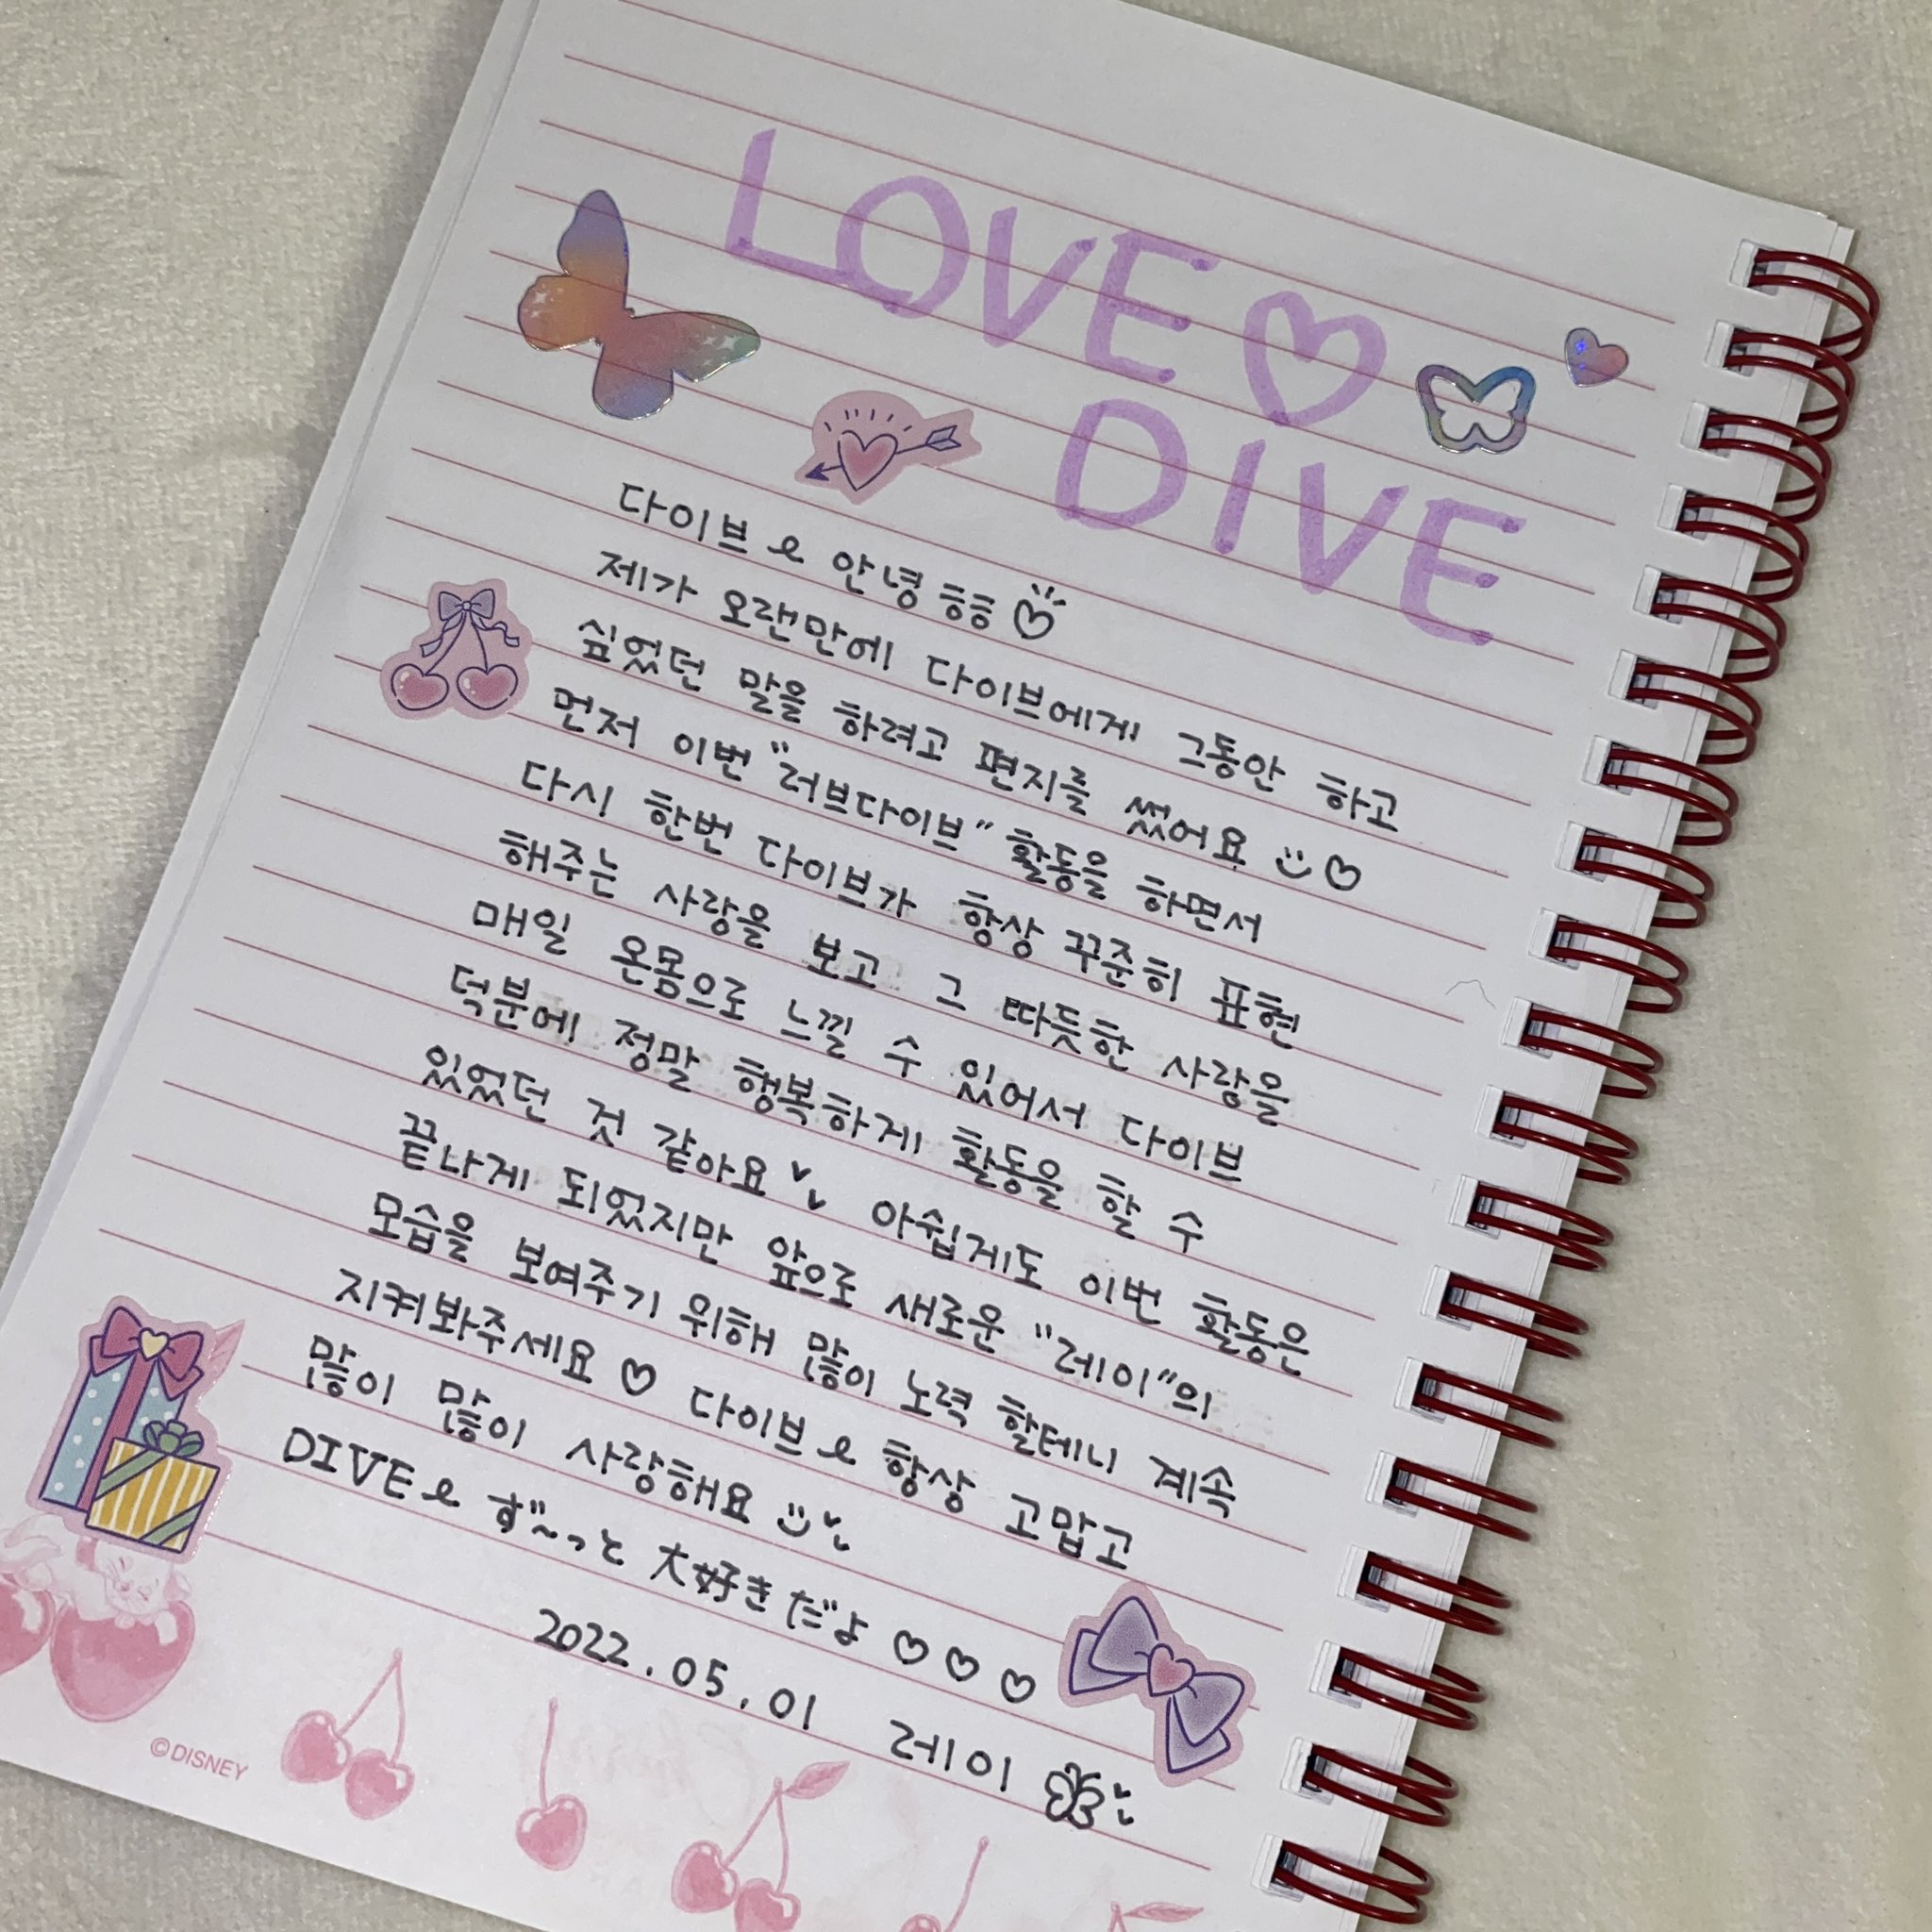 LOVE♡
DIVE
다이브ㅇ 안녕ㅎㅎ♡
제가 오랜만에 다이브에게 그동안 하고
싶었던 말을 하려고 편지를 썼어요 ♡
먼저 이번 "러브다이브" 활동을 하면서
다시 한번 다이브가 항상 꾸준히 표현
해주는 사랑을 보고 그 따듯한 사랑을
매일 온몸으로 느낄 수 있어서 다이브
덕분에 정말 행복하게 활동을 할 수
있었던 것 같아요 아쉽게도 이번 활동은
끝나게 되었지만 앞으로 새로운 "레이"의
모습을 보여주기 위해 많이 노력 할테니 계속
지켜봐주세요♡ 다이브ㅇ 항상 고맙고
많이 많이 사랑해요
DIVEㅇ ず~っと 大好きだよ ♡♡♡
2022.05.01 레이
©DISNEY